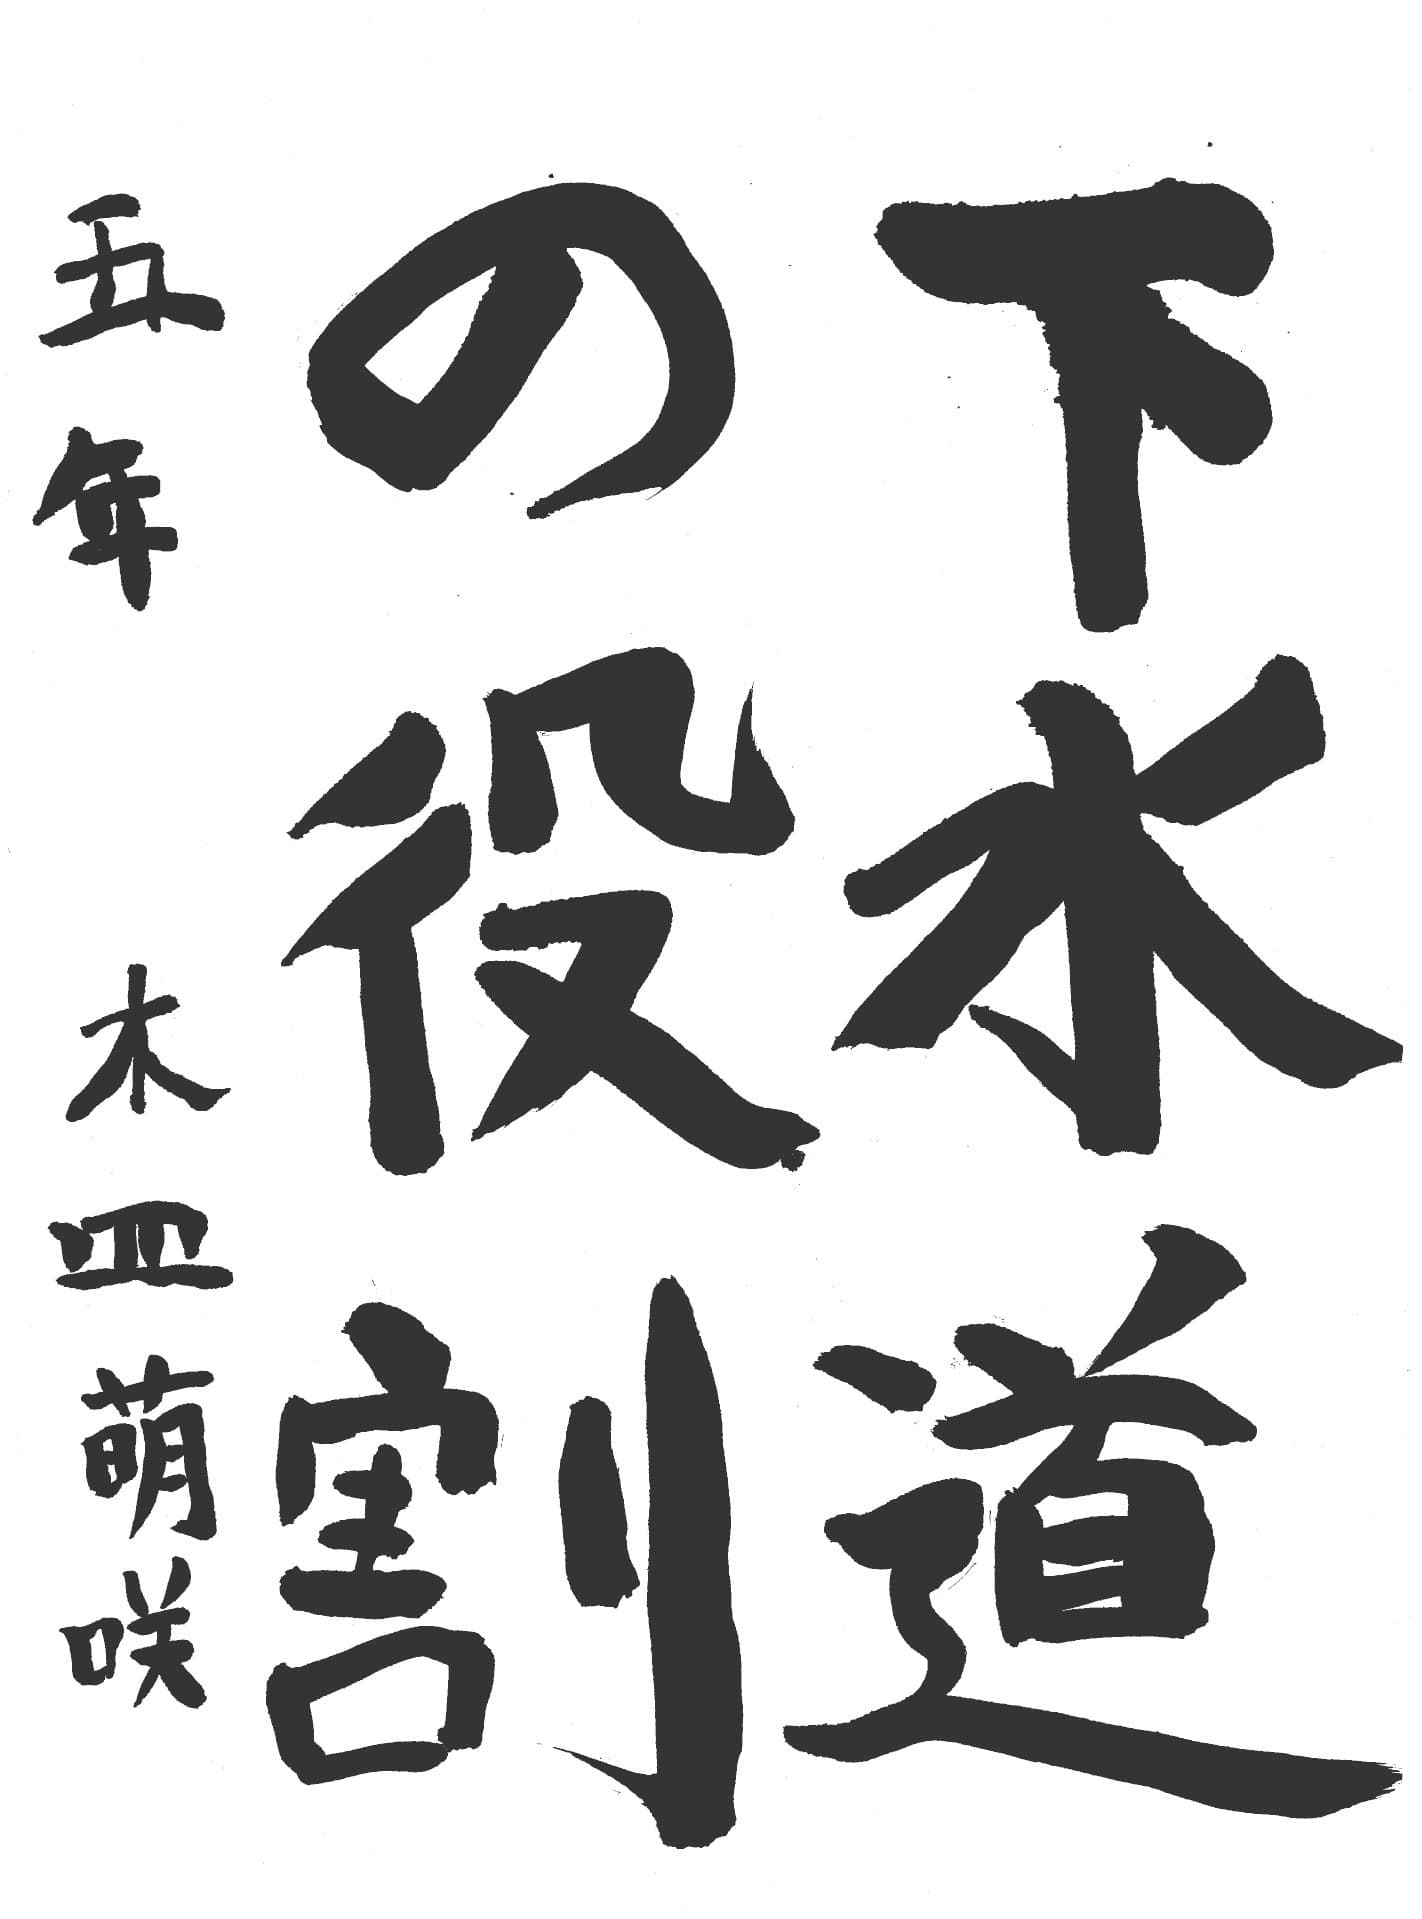 下水道
の役割
五年 木皿萌咲